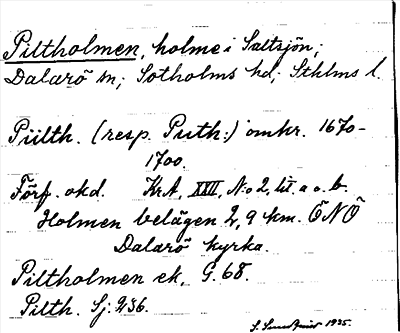 Piltholmen, holme i Saltsjön;
Dalarö sn; Sotholms hd; Sthlms l.
Piilth. (resp. Puth:) omkr. 1670-
1700.
Förf. okd. KrA, XXII, N:o 2, litt. a o. b.
Holmen belägen 2,9 km. ÖNÖ
Dalarö kyrka.
Piltholmen ek. G. 68.
Pilth. Sj: 236.
1935.